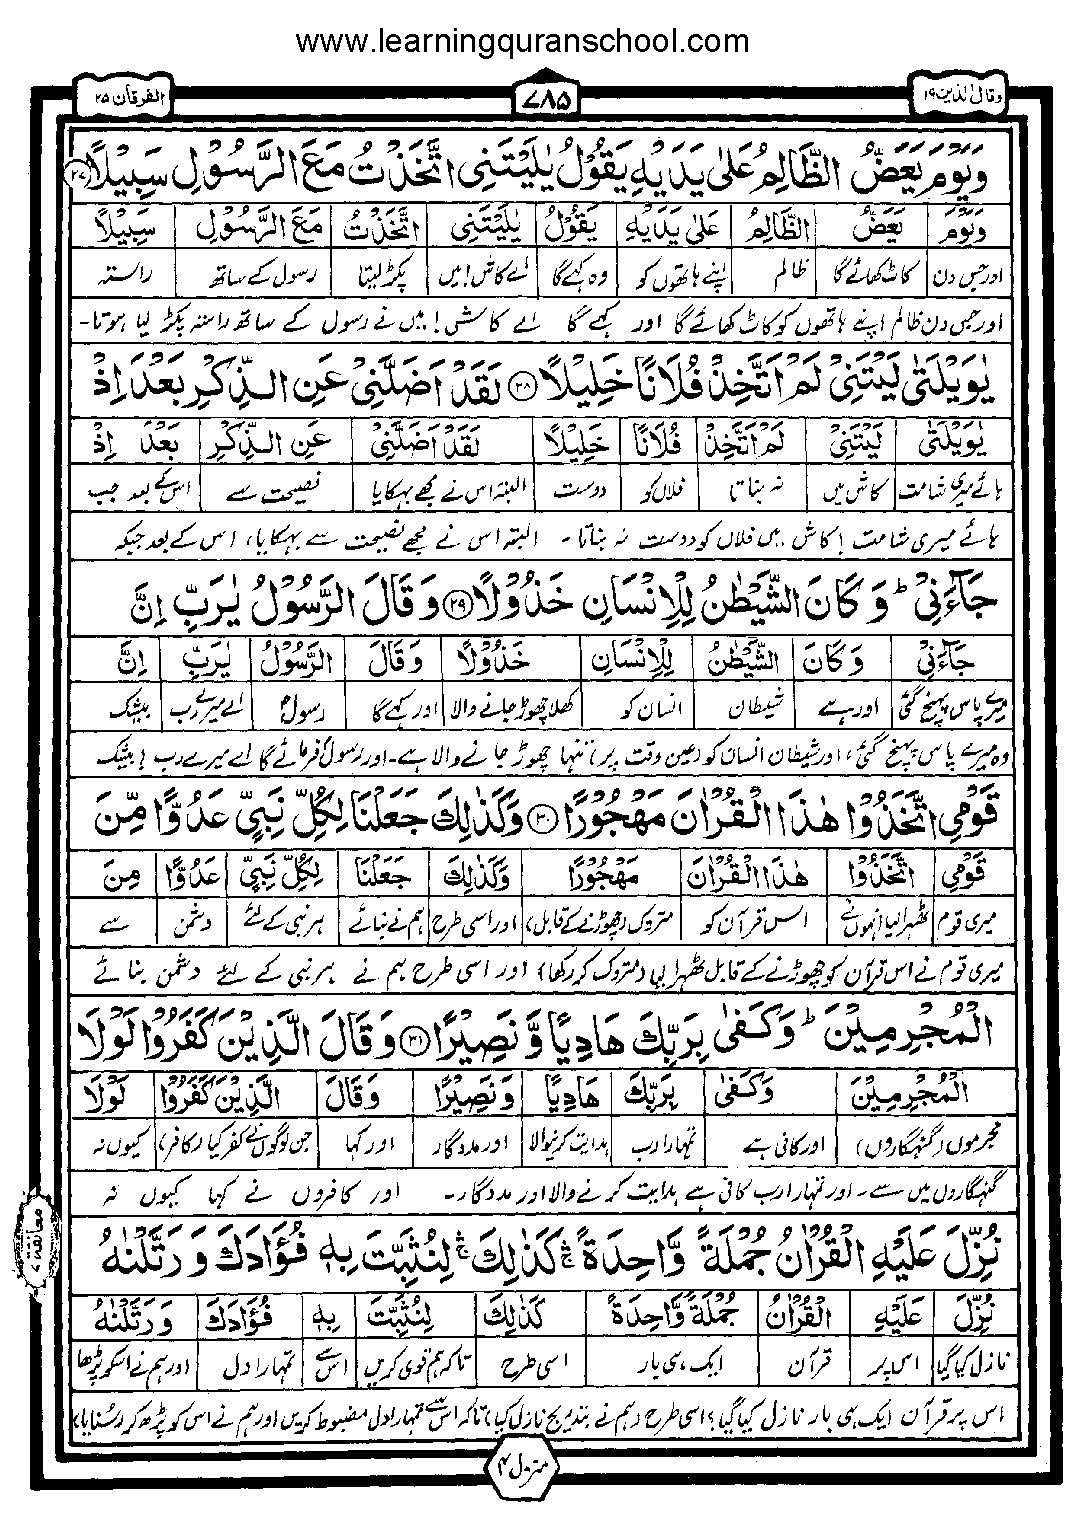 www.learningquranschool.com
وقال الذین ۱۹ ۷۸۵ الفرقان ۲۵
وَيَوْمَ يَعَضُّ الظَّالِمُ عَلٰى يَدَيْهِ يَقُوْلُ يٰلَيْتَنِى اتَّخَذْتُ مَعَ الرَّسُوْلِ سَبِيْلًا ۲۷
وَيَوْمَ يَعَضُّ الظَّالِمُ عَلٰى يَدَيْهِ يَقُوْلُ يٰلَيْتَنِى اتَّخَذْتُ مَعَ الرَّسُوْلِ سَبِيْلًا
اور جس دن کاٹ کھائے گا ظالم اپنے ہاتھوں کو وہ کہے گا اے کاش! میں پکڑ لیتا رسول کے ساتھ راستہ
اور جس دن ظالم اپنے ہاتھوں کو کاٹ کھائے گا اور کہے گا اے کاش! میں نے رسول کے ساتھ راستہ پکڑ لیا ہوتا۔
يٰوَيْلَتٰى لَيْتَنِىْ لَمْ اَتَّخِذْ فُلَانًا خَلِيْلًا ۲۸ لَقَدْ اَضَلَّنِىْ عَنِ الذِّكْرِ بَعْدَ اِذْ
يٰوَيْلَتٰى لَيْتَنِىْ لَمْ اَتَّخِذْ فُلَانًا خَلِيْلًا لَقَدْ اَضَلَّنِىْ عَنِ الذِّكْرِ بَعْدَ اِذْ
ہائے میری شامت کاش میں نہ بناتا فلاں کو دوست البتہ اس نے مجھے بہکایا نصیحت سے اس کے بعد جب
ہائے میری شامت! کاش میں فلاں کو دوست نہ بناتا۔ البتہ اس نے مجھے نصیحت سے بہکایا، اس کے بعد جبکہ
جَآءَنِىْ ؕ وَكَانَ الشَّيْطٰنُ لِلْاِنْسَانِ خَذُوْلًا ۲۹ وَقَالَ الرَّسُوْلُ يٰرَبِّ اِنَّ
جَآءَنِىْ وَكَانَ الشَّيْطٰنُ لِلْاِنْسَانِ خَذُوْلًا وَقَالَ الرَّسُوْلُ يٰرَبِّ اِنَّ
میرے پاس پہنچ گئی اور ہے شیطان انسان کو کھلا چھوڑ جانے والا اور کہے گا رسولؐ اے میرے رب بیشک
وہ میرے پاس پہنچ گئی، اور شیطان انسان کو (عین وقت پر) تنہا چھوڑ جانے والا ہے۔ اور رسولؐ فرمائے گا اے میرے رب! بیشک
قَوْمِى اتَّخَذُوْا هٰذَا الْقُرْاٰنَ مَهْجُوْرًا ۳۰ وَكَذٰلِكَ جَعَلْنَا لِكُلِّ نَبِىٍّ عَدُوًّا مِّنَ
قَوْمِى اتَّخَذُوْا هٰذَا الْقُرْاٰنَ مَهْجُوْرًا وَكَذٰلِكَ جَعَلْنَا لِكُلِّ نَبِىٍّ عَدُوًّا مِنَ
میری قوم ٹھہرالیا انہوں نے اس قرآن کو متروک (چھوڑنے کے قابل) اور اسی طرح ہم نے بنائے ہر نبی کے لئے دشمن سے
میری قوم نے اس قرآن کو چھوڑنے کے قابل ٹھہرا لیا (متروک کر رکھا) اور اسی طرح ہم نے ہر نبی کے لئے دشمن بنائے
الْمُجْرِمِيْنَ ؕ وَكَفٰى بِرَبِّكَ هَادِيًا وَّنَصِيْرًا ۳۱ وَقَالَ الَّذِيْنَ كَفَرُوْا لَوْلَا
الْمُجْرِمِيْنَ وَكَفٰى بِرَبِّكَ هَادِيًا وَنَصِيْرًا وَقَالَ الَّذِيْنَ كَفَرُوْا لَوْلَا
مجرموں (گنہگاروں) اور کافی ہے تمہارا رب ہدایت کرنیوالا اور مددگار اور کہا جن لوگوں نے کفر کیا (کافر) کیوں نہ
گنہگاروں میں سے۔ اور تمہارا رب کافی ہے ہدایت کرنے والا اور مددگار۔ اور کافروں نے کہا کیوں نہ
نُزِّلَ عَلَيْهِ الْقُرْاٰنُ جُمْلَةً وَّاحِدَةً كَذٰلِكَ لِنُثَبِّتَ بِهٖ فُؤَادَكَ وَرَتَّلْنٰهُ
معانقہ
نُزِّلَ عَلَيْهِ الْقُرْاٰنُ جُمْلَةً وَّاحِدَةً كَذٰلِكَ لِنُثَبِّتَ بِهٖ فُؤَادَكَ وَرَتَّلْنٰهُ
نازل کیا گیا اس پر قرآن ایک ہی بار اسی طرح تاکہ ہم قوی کریں اس سے تمہارا دل اور ہم نے اسکو پڑھا
اس پر قرآن ایک ہی بار نازل کیا گیا؟ اسی طرح (ہم نے بتدریج نازل کیا) تاکہ اس سے تمہارا دل مضبوط کریں اور ہم نے اس کو پڑھ کر (سنایا)
منزل ۴